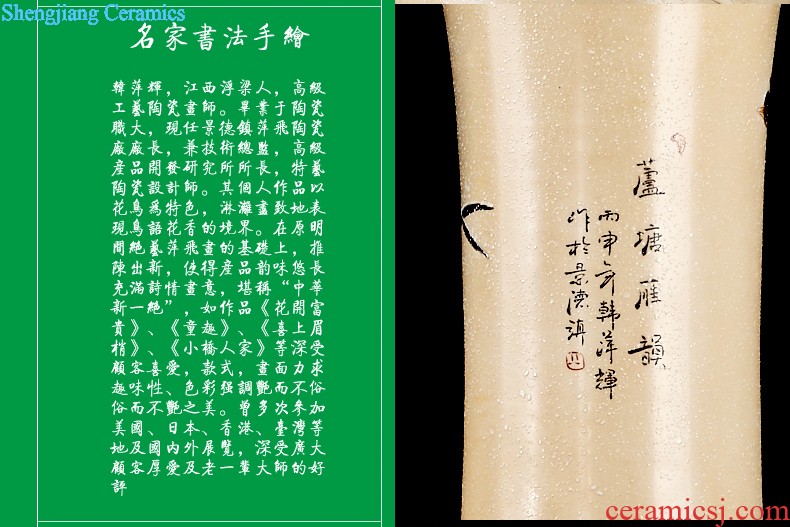 Shengjiang Ceramics
名家書法手繪
韓萍輝，江西浮梁人，高級
工藝陶瓷畫師。畢業于陶瓷
職大，現任景德鎮萍飛陶瓷
廠廠長，兼技術總監，高級
産品開發研究所所長，特藝
陶瓷設計師。其個人作品以
花鳥爲特色，淋灕盡致地表
現鳥語花香的境界。在原明
間絕藝萍飛畫的基礎上，推
陳出新，使得産品韵味悠長
充滿詩情畫意，堪稱“中華
新一絕”，如作品《花開富
貴》、《童趣》、《喜上眉
梢》、《小橋人家》等深受
顧客喜愛，款式，畫面力求
趣味性、色彩强調艷而不俗
俗而不艷之美。曾多次參加
美國、日本、香港、臺灣等
地及國内外展覽，深受廣大
顧客厚愛及老一輩大師的好
評
蘆塘雁韻
丙申年韓萍輝
作於景德鎮
ceramicsj.com